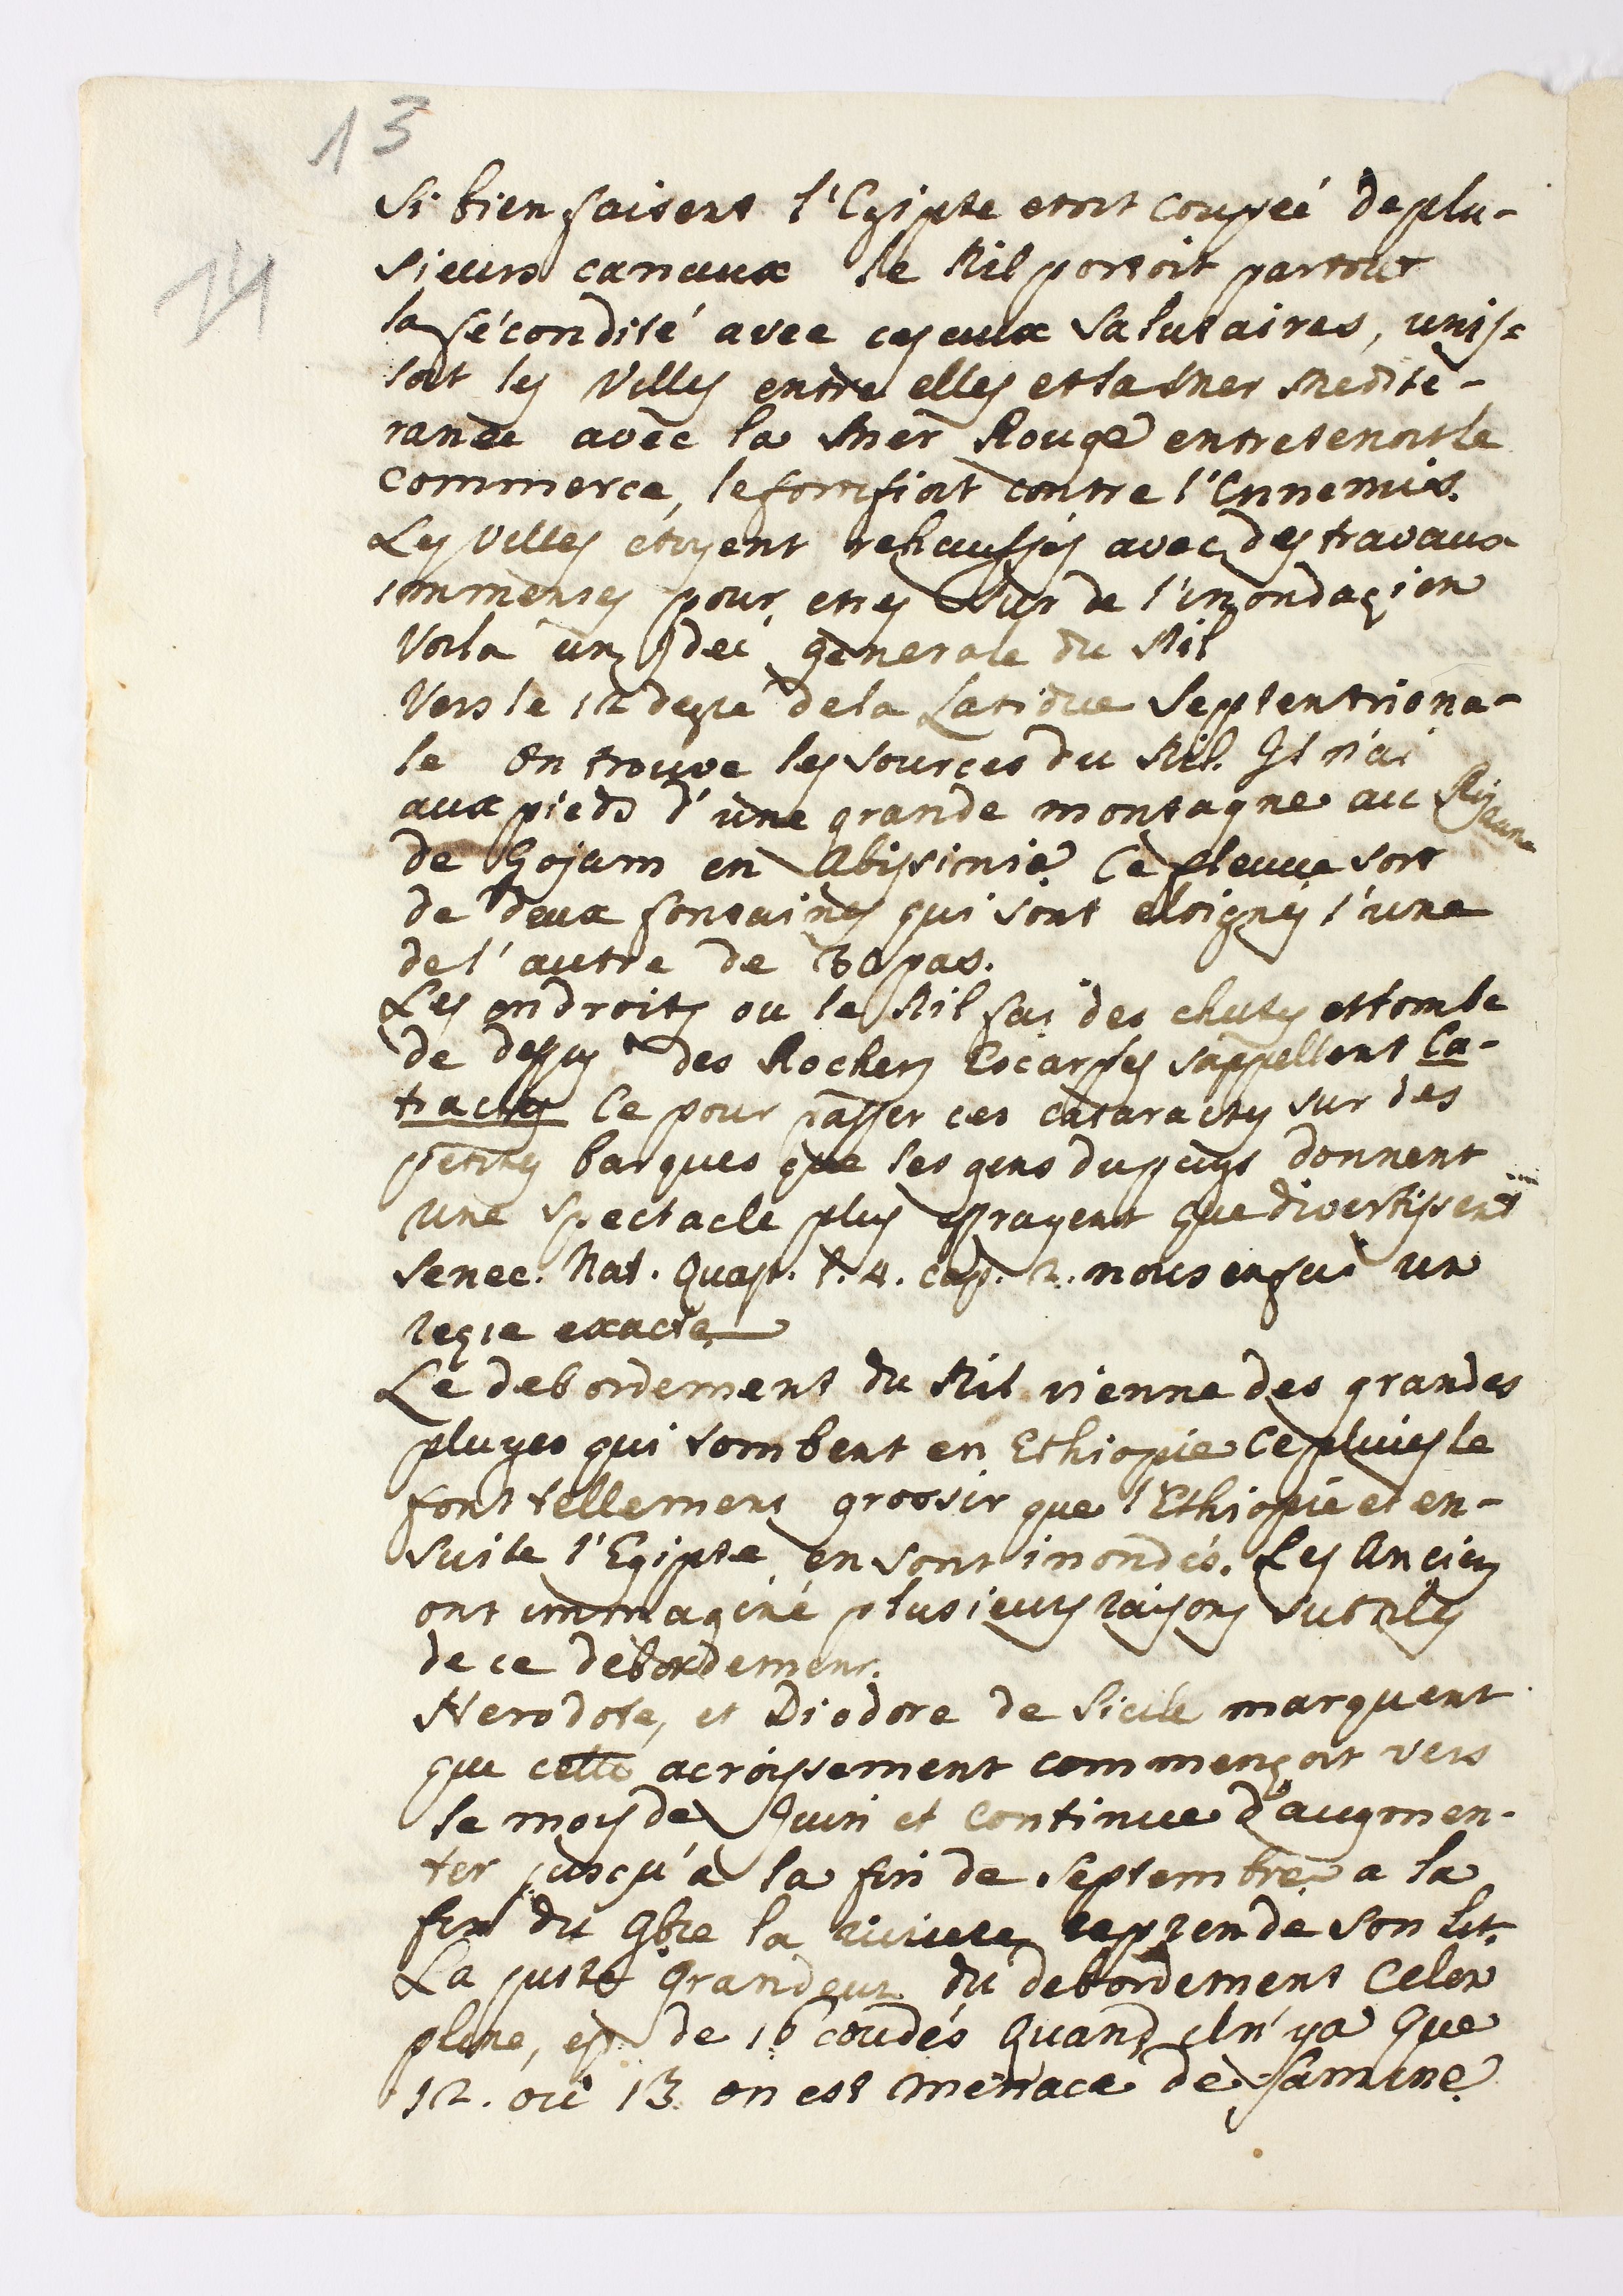 13
14
si bien faisent l'Egipte etoit coupeé de plu-
sieurs canaux le Nil portoit partout
la fécondité avec ces eaux salutaires, unis-
soit les Villes entre elles et la Mer Medite-
ranée avec la Mer Rouge entretenoit le
commerce, le fortifioit contre l'Ennemis.
Les Villes étoyent rehaussés avec des travaux
immenses pour etres sur de l'inondaçion
Voila un Ideé generale du Nil
Vers le 12 degré de la Latidue Septentriona-
le on trouve les sources du Nil. Il n'ai
aux pieds d'une grande montagne au Rijaume
de Gojam en Abissinie. Ce fleuve sort
de deux fontaines qui sont eloignés l'une
de l'autre de 30 pas.
Les endroits ou le Nil fai des chutes et tombe
de dessus des Rochers Escarpés s'appellent Ca-
tractes Ce pour passer ces cataractes sur des
petites barques que les gens du pays donnent
une spectacle plus effrayent que divertissent
Senec. Nat. Quaest. l. 4. cap. 2. nous en fai un
reçie exacte
Le debordement du Nil vienne des grandes
pluyes qui tombent en Ethiopie Ce pluies le
font tellement groosir que l'Ethiopie et en-
suite l'Egipte en sont inondés. Les Anciens
ont immaginé plusieurs raisons subtiles
de ce debordement.
Herodote, et Diodore de Sicile marquent
que cette acroissement commençoit vers
le mois de Juin et continue d'augmen-
ter jusqu'a la fin de Septembre a la
fin du 9bre la riviere reprende son lit.
La juste grandeur du debordement Celon
pline, est de 16 coudés Quand il n'ya que
12. ou 13 on est menace de famine